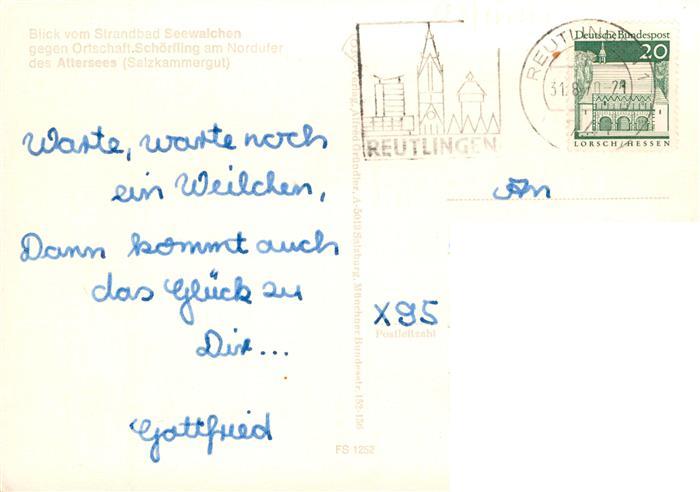 Blick vom Strandbad Seewalchen
gegen Ortschaft Schörfling am Nordufer
des Attersees (Salzkammergut)
Warte, warte noch
ein Weilchen,
Dann kommt auch
das Glück zu
Dir...
Gottfried
FS 1252
Gründler, A-5013 Salzburg, Münchner Bundesstr. 152-156
REUTLINGEN
REUTLINGEN 1
31.8.70-21
Deutsche Bundespost
20
LORSCH/HESSEN
An
X95
Postleitzahl